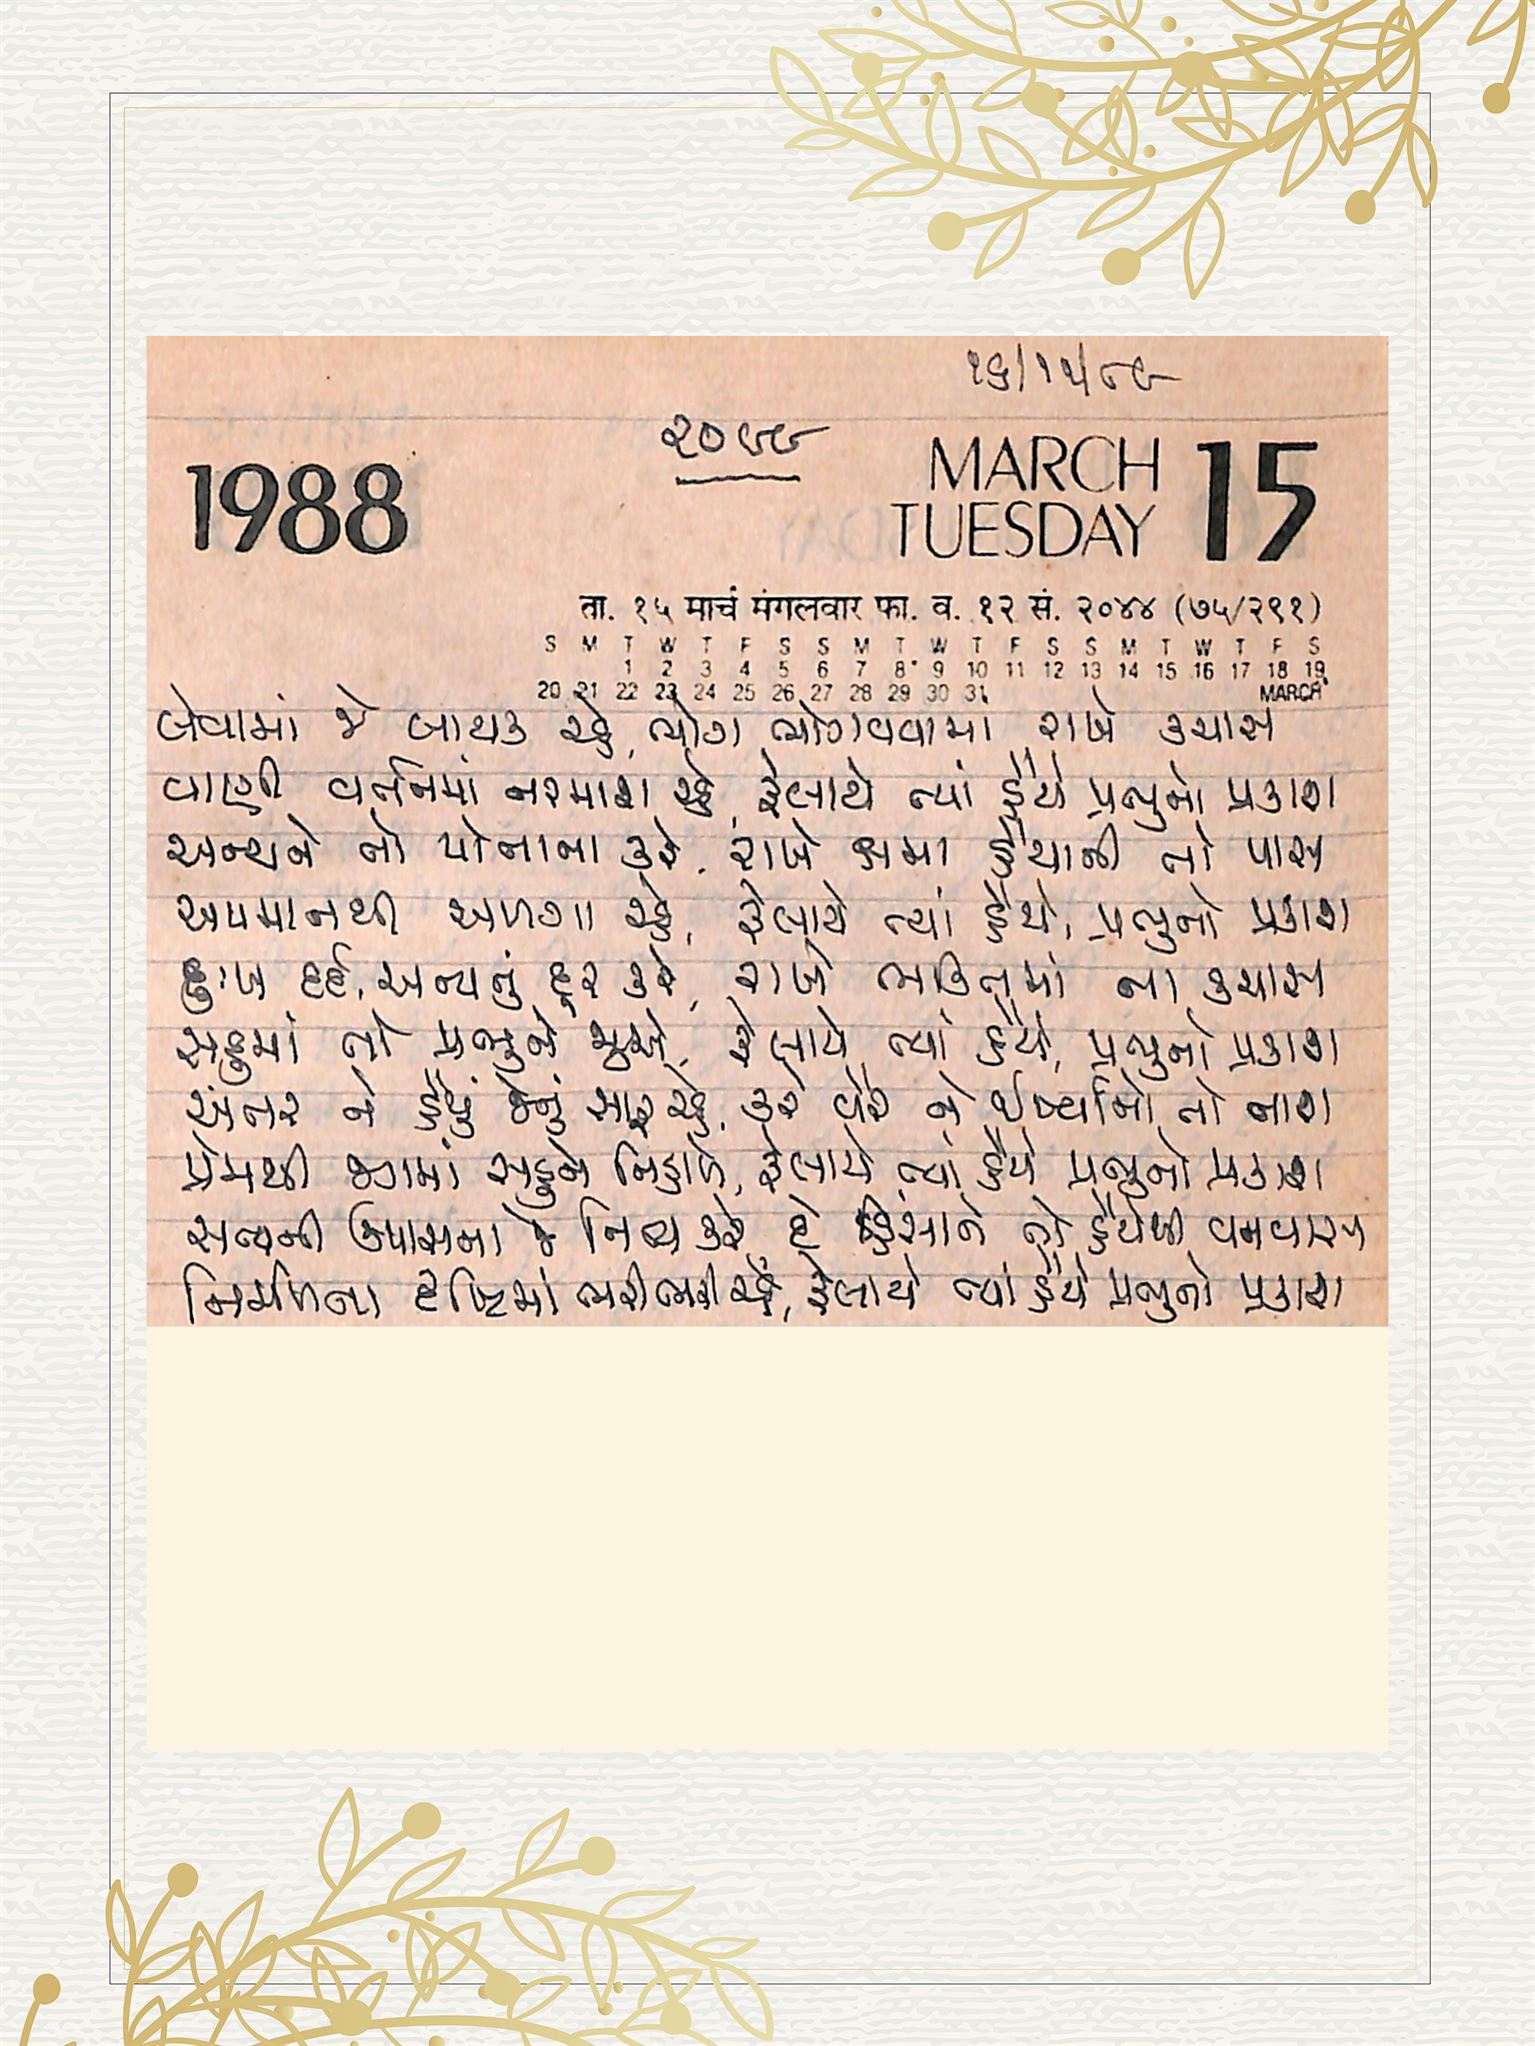 ૧૬/૧૧/૮૯
૨૦૮૮
1988
MARCH 15
TUESDAY
ता. १५ मार्च मंगलवार फा. व. १२ सं. २०४४ (७५/२९१)
S M T W T F S S M T W T F S S M T W T F S
1 2 3 4 5 6 7 8 9 10 11 12 13 14 15 16 17 18 19
20 21 22 23 24 25 26 27 28 29 30 31 MARCH
લેવામાં જે લાયક રહે, ભોગ ભોગવવામાં રાખે કચાસ
વાણી વર્તનમાં નરમાશ રહે, ફેલાયે ત્યાં હૈયે પ્રભુનો પ્રકાશ
અન્યને તો પોતાના કરે, રાખે ક્ષમા હૈયાની તો પાસ
અપમાનથી અળગા રહે, ફેલાયે ત્યાં હૈયે, પ્રભુનો પ્રકાશ
દુઃખ દર્દ, અન્યનું દૂર કરે, રાખે ભક્તિમાં ના કચાસ
સહુમાં તો પ્રભુને જુએ, ફેલાયે ત્યાં હૈયે, પ્રભુનો પ્રકાશ
અંતર ને હૈયું જેનું સાફ રહે, કરે વેર ને ઈર્ષ્યાનો તો નાશ
પ્રેમથી જગમાં સહુને નિહાળે, ફેલાયે ત્યાં હૈયે પ્રભુનો પ્રકાશ
સત્યની ઉપાસના જે નિત્ય કરે, દે હિંસાને તો હૈયેથી વનવાસ
નિર્મળતા દૃષ્ટિમાં ભરી ભરી રહે, ફેલાયે ત્યાં હૈયે પ્રભુનો પ્રકાશ